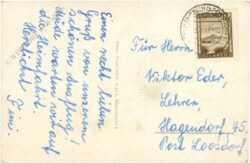 Einen recht lieben
Gruß von unserem
schönen Ausflug!
Müde warten wir auf
die Heimfahrt.
Herzlichst
Fini.
Für Herrn
Viktor Eder,
Lehrer,
Hagendorf 45
Post Loosdorf